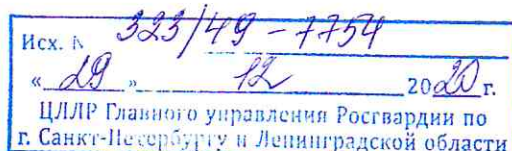 Исх. № 323/49-7754
« 29 » 12 2020 г.
ЦЛЛР Главного управления Росгвардии по
г. Санкт-Петербургу и Ленинградской области